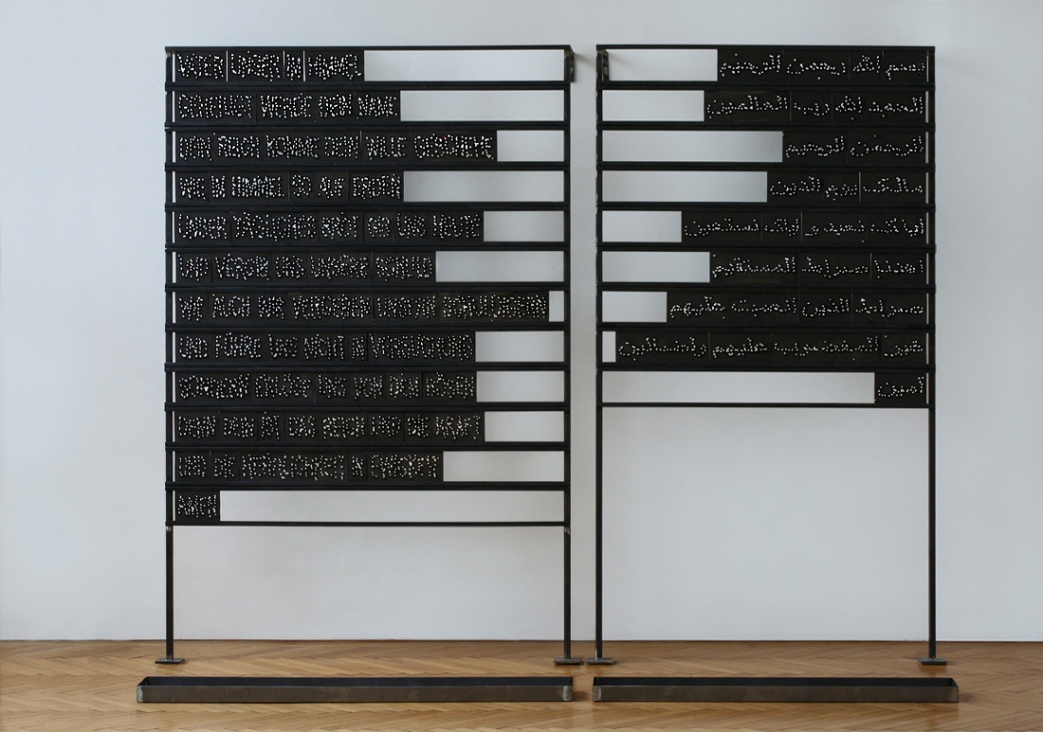 VATER UNSER IM HIMMEL
GEHEILIGT WERDE DEIN NAME
DEIN REICH KOMME DEIN WILLE GESCHEHE
WIE IM HIMMEL SO AUF ERDEN
UNSER TÄGLICHES BROT GIB UNS HEUTE
UND VERGIB UNS UNSERE SCHULD
WIE AUCH WIR VERGEBEN UNSERN SCHULDIGERN
UND FÜHRE UNS NICHT IN VERSUCHUNG
SONDERN ERLÖSE UNS VON DEM BÖSEN
DENN DEIN IST DAS REICH UND DIE KRAFT
UND DIE HERRLICHKEIT IN EWIGKEIT
AMEN
بسم الله الرحمن الرحيم
الحمد لله رب العالمين
الرحمن الرحيم
مالك يوم الدين
إياك نعبد و إياك نستعين
اهدنا صراط المستقيم
صراط الذين انعمت عليهم
غير المغضوب عليهم ولا الضالين
آمين